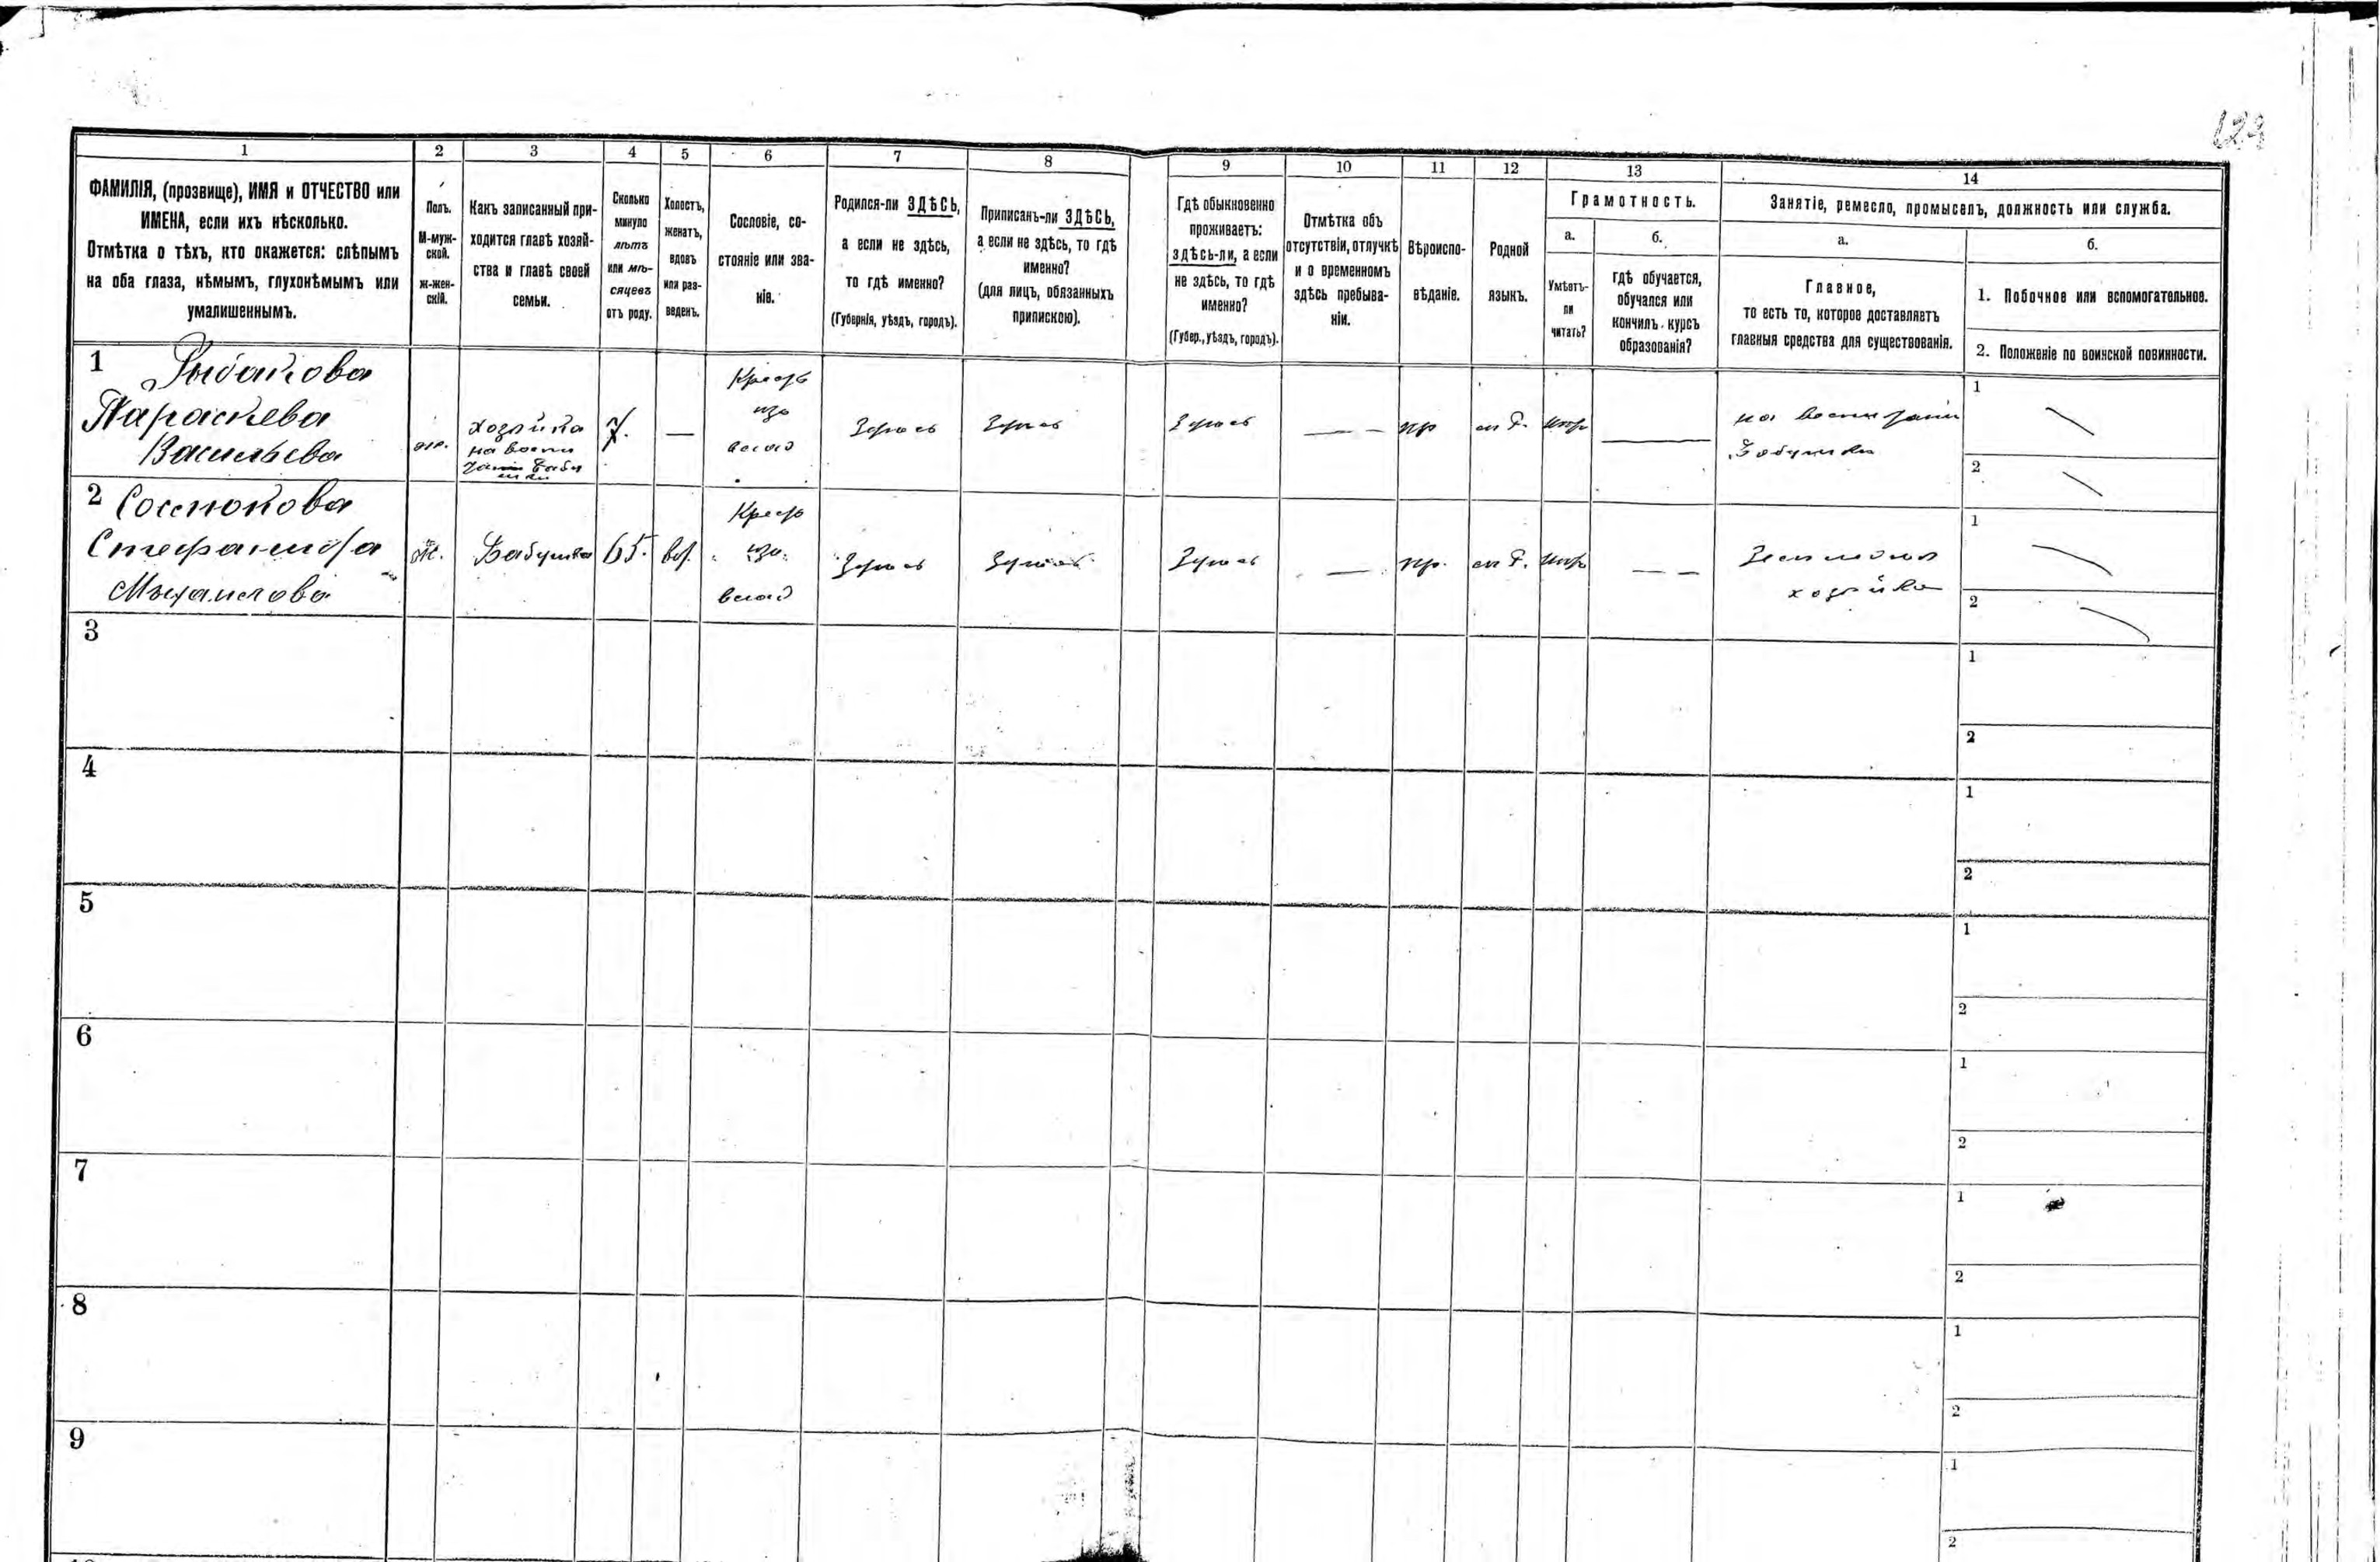 123
1
2
3
4
5
6
7
8
9
10
11
12
13
14
ФАМИЛІЯ, (прозвище), ИМЯ и ОТЧЕСТВО или
ИМЕНА, если ихъ нѣсколько.
Отмѣтка о тѣхъ, кто окажется: слѣпымъ
на оба глаза, нѣмымъ, глухонѣмымъ или
умалишеннымъ.
Полъ.
М-муж-
ской.
Ж-жен-
скій.
Какъ записанный при-
ходится главѣ хозяй-
ства и главѣ своей
семьи.
Сколько
минуло
лѣтъ
или мѣ-
сяцевъ
отъ роду.
Холостъ,
женатъ,
вдовъ
или раз-
веденъ.
Сословіе, со-
стояніе или зва-
ніе.
Родился-ли ЗДѢСЬ,
а если не здѣсь,
то гдѣ именно?
(Губернія, уѣздъ, городъ).
Приписанъ-ли ЗДѢСЬ,
а если не здѣсь, то гдѣ
именно?
(для лицъ, обязанныхъ
припискою).
Гдѣ обыкновенно
проживаетъ:
здѣсь-ли, а если
не здѣсь, то гдѣ
именно?
(Губер., уѣздъ, городъ).
Отмѣтка объ
отсутствіи, отлучкѣ
и о временномъ
здѣсь пребыва-
ніи.
Вѣроиспо-
вѣданіе.
Родной
языкъ.
Грамотность.
а.
Умѣетъ-
ли
читать?
б.
гдѣ обучается,
обучался или
кончилъ курсъ
образованія?
Занятіе, ремесло, промыселъ, должность или служба.
а.
Главное,
то есть то, которое доставляетъ
главныя средства для существованія.
б.
1. Побочное или вспомогательное.
2. Положеніе по воинской повинности.
1 Рыбакова
Параскева
Васильева
ж.
хозяйка
на воспи
7.
—
Крест
изъ
влад
Здѣсь
Здѣсь
Здѣсь
—
пр
нѣтъ
—
на воспитаніи
Бабушки
1
2
2
Стефанида
Михайлова
ж.
Бабушка
65.
вд.
Крест
изъ
влад
Здѣсь
Здѣсь
Здѣсь
—
пр.
нѣтъ
— —
хозяйка
1
2
3
1
2
4
1
2
5
1
2
6
1
2
7
1
2
8
1
2
9
1
2